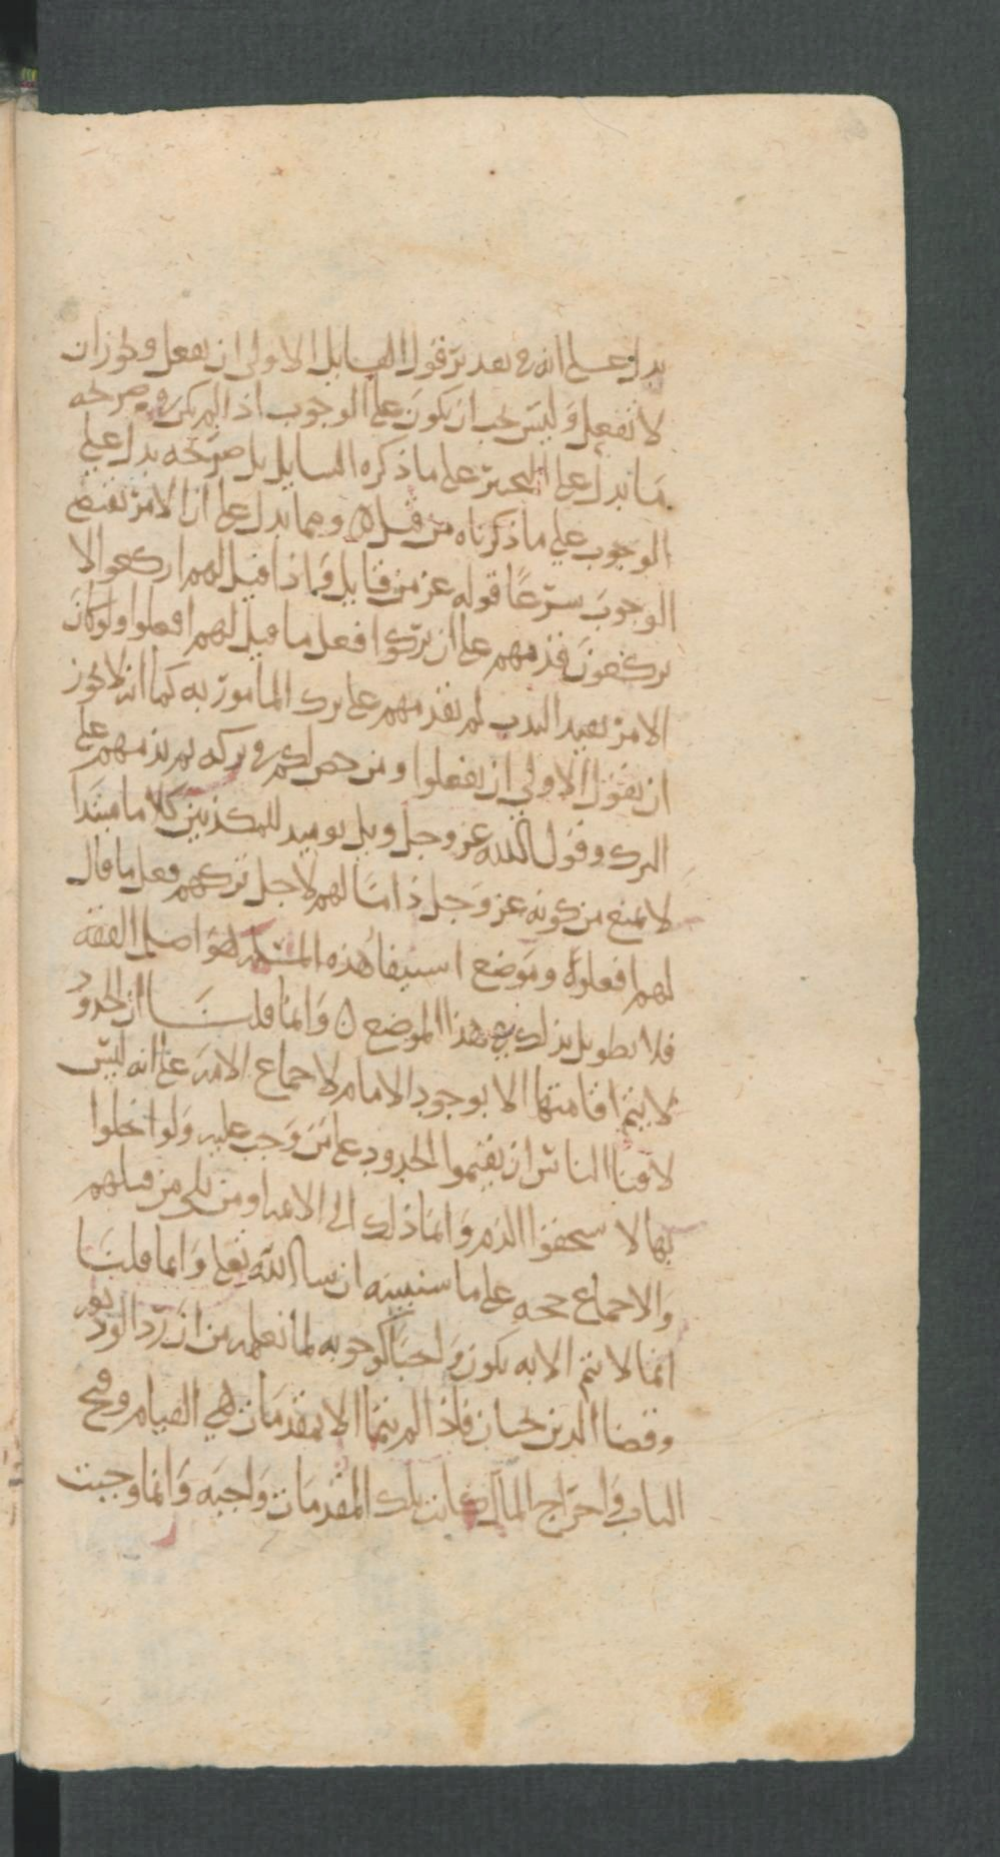 يدل على انه في تعديز قول القايل الاولى ان يفعل ويجوز ان
لا تفعل وليس يجب ان يكون على الوجوب اذا لم يكن في صريحه
ما يدل على التخيير على ما ذكره السايل بل صريحه يدل على
الوجوب على ما ذكرناه من قبل ٥ ومما يدل على ان الامر يقتضي
الوجوب سرعا قوله عز من قايل واذا قيل لهم اركعوا لا
يركعون فذمهم على ان تركوا فعل ما قيل لهم افعلوا ولو كان
الامر يفيد الندب لم يذمهم على ترك المامور به كما انه لا يجوز
ان يقول الاولى ان تفعلوا ومرخص لكم في تركه ثم يذمهم على
الترك وقول الله عز وجل ويل يوميد للمكذبين كلاما مبتدا
لا يمنع من كونه عز وجل ذاما لهم لاجل تركهم فعل ما قال
لهم افعلوه وموضع استيفا هذه المسلة هو اصول الفقه
فلا نطول بذلك في هذا الموضع ٥ وانما قلنا ان الحدود
لا يتم اقامتها الا بوجود الامام لاجماع الامة على انه ليس
لافنا الناس ان يقيموا الحدود على من وجب عليه ولو اخلوا
بها لا ستحقوا الذم وانما ذلك الى الائمة او من يلي من قبلهم
والاجماع حجه على ما سنبينه ان شا الله تعلى وانما قلنا
انما لا يتم الا به يكون واجبا كوجوبه لما نعلمه من ان رد الوديعة
وقضا الدين يجبان فاذا لم يتما الا بمقدمات هي القيام وفتح
الباب واخراج المال كانت تلك المقدمات واجبه وانما وجبت